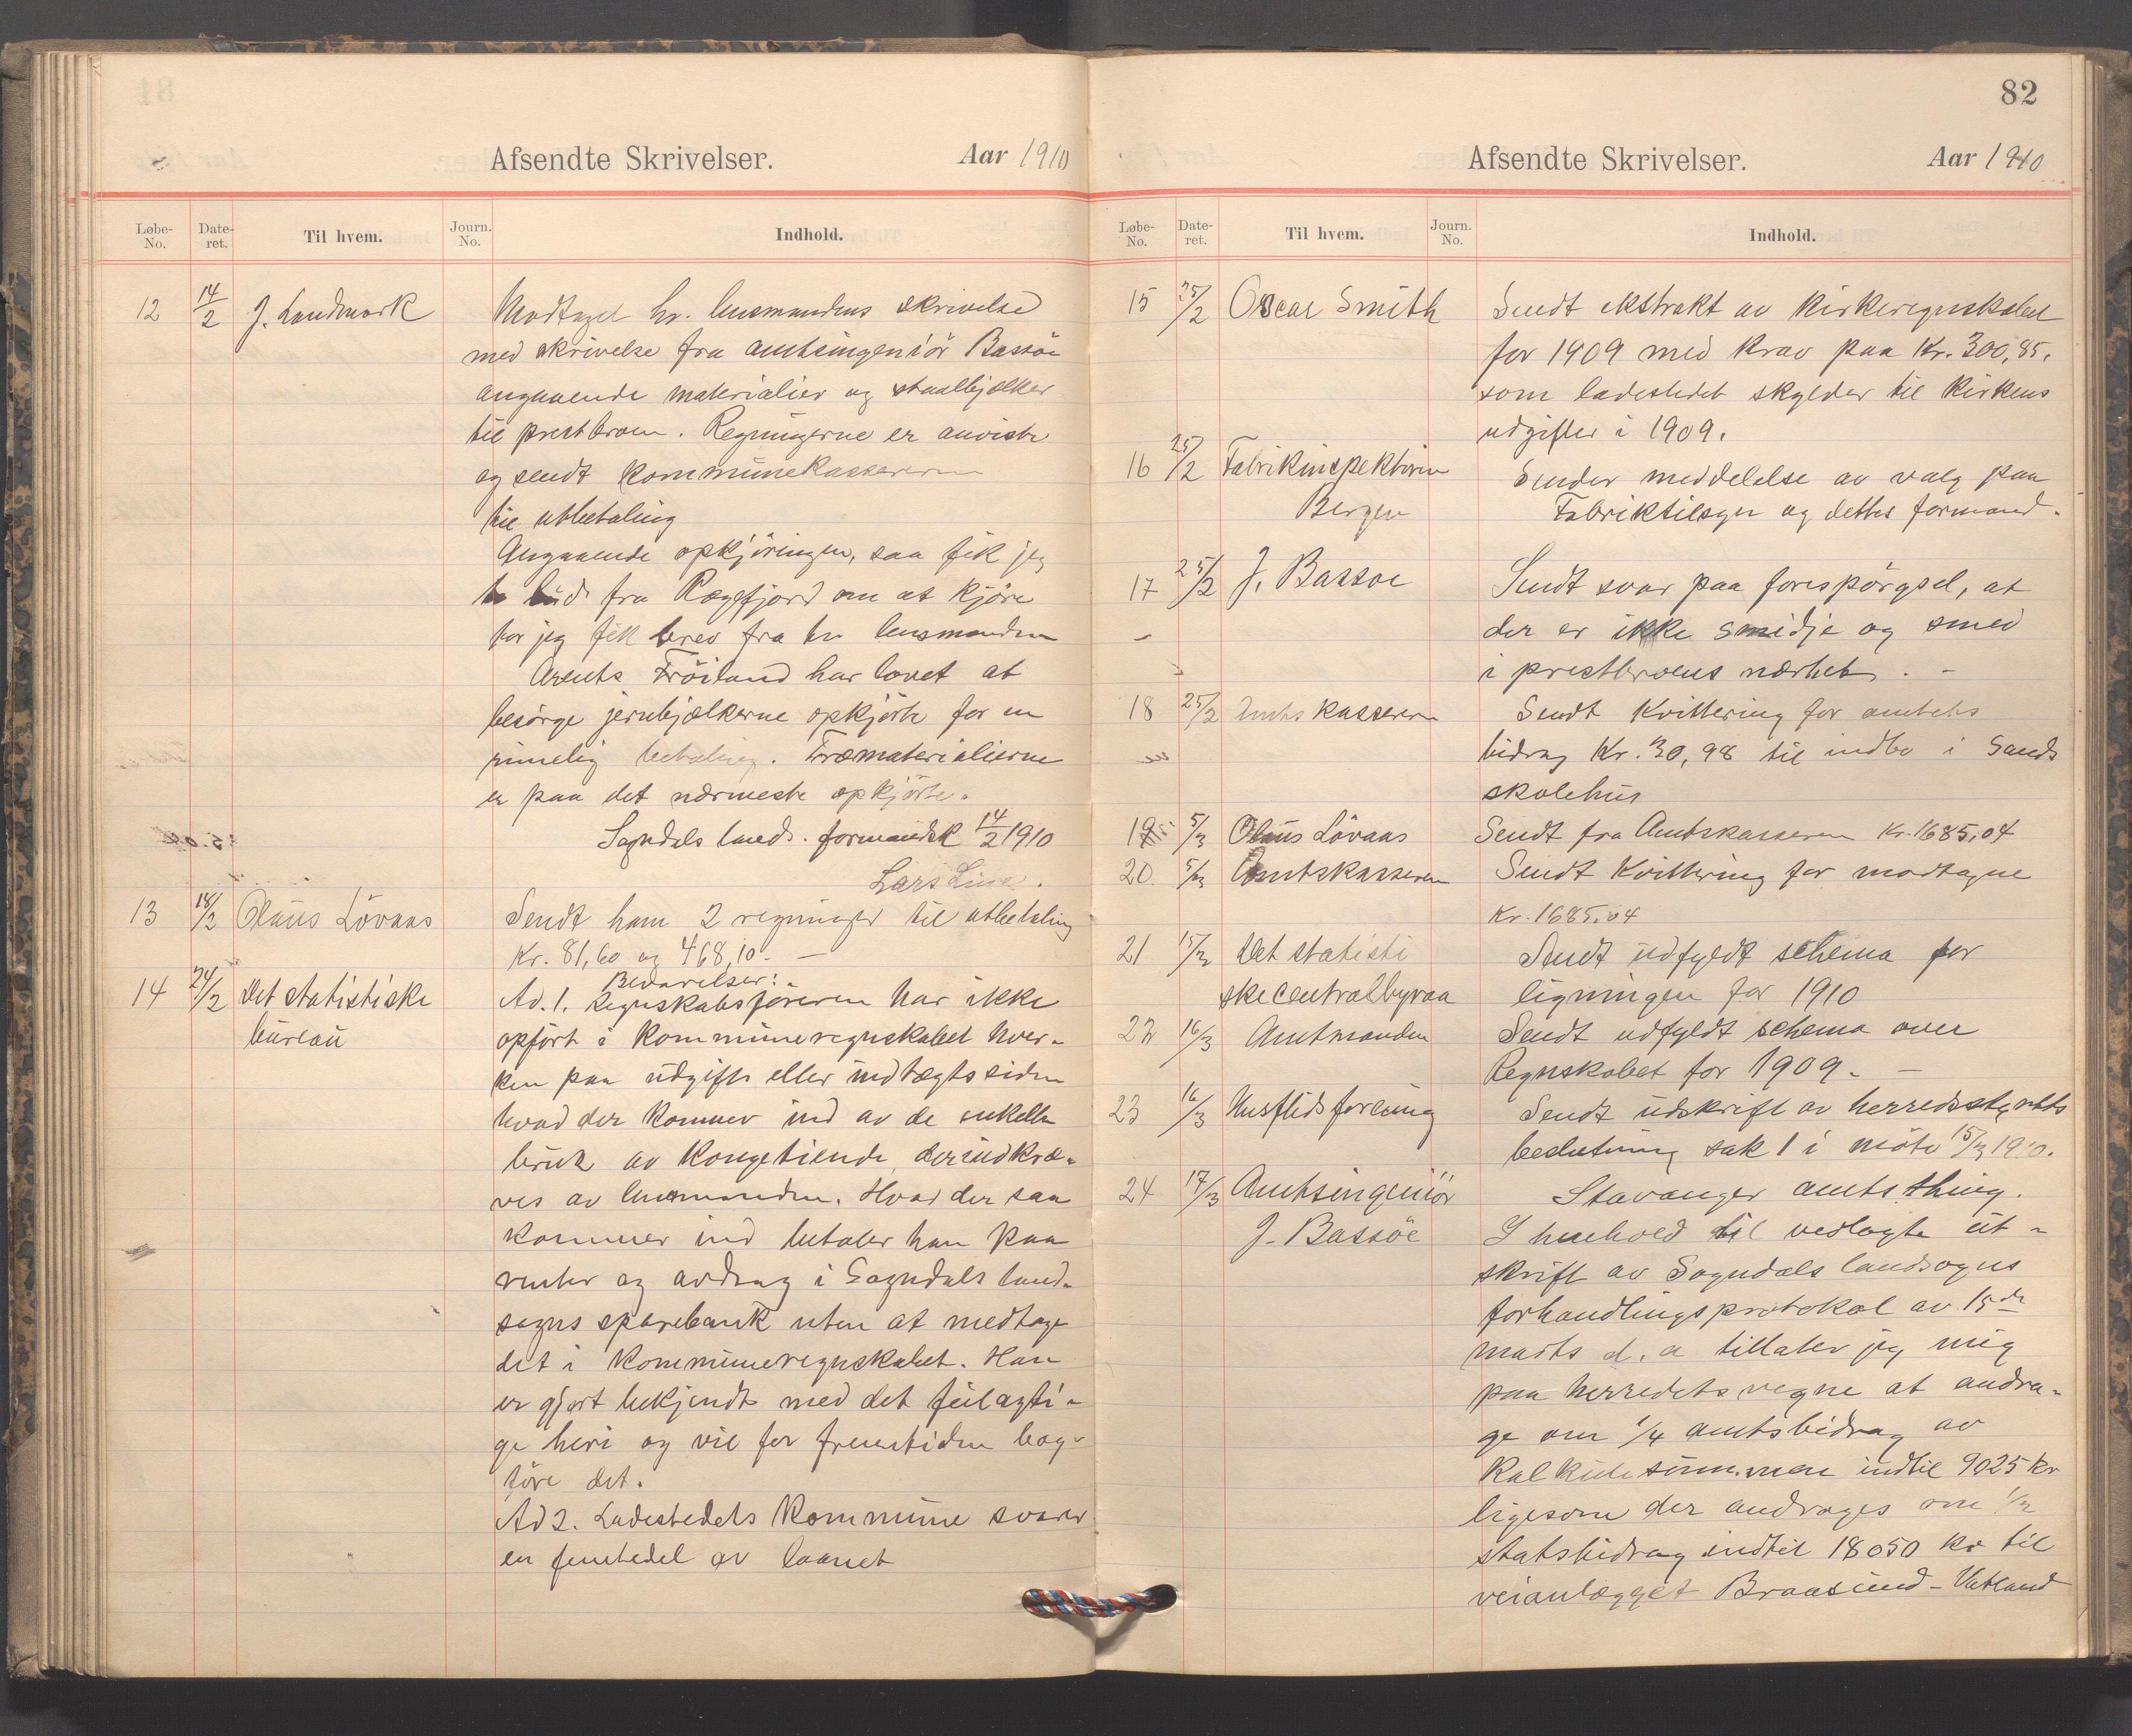 Afsendte Skrivelser. Aar 1910
Løbe-No. Date-ret. Til hvem. Journ. No. Indhold.
12 14/2 J. Landmark Modtaget hr. lensmandens skrivelse
med skrivelse fra amtsingeniör Bassöe
angaaende materialier og staalbjælker
til prestbroen. Regningerne er anviste
og sendt kommunekassereren
til utbetaling
Angaaende opkjöringen, saa fik jeg
bud fra Rægefjord om at kjöre
för jeg fik brev fra hr lensmanden
Arents Fröiland har lovet at
besörge jernbjælkerne opkjörte for en
rimelig betaling. Træmaterialierne
er paa det nærmeste opkjörte.
Sogndals lands. formandsk 14/2 1910
Lars Line.
13 18/2 Olaus Lövaas Sendt ham 2 regninger til utbetaling
Kr. 81,60 og 468,10. —
14 24/2 Det statistiske Besvarelser:
Ad. 1. Regnskabsföreren har ikke
bureau opfört i kommuneregnskabet hver-
ken paa udgifts eller indtægtssiden
hvad der kommer ind av de enkelte
bruk av Kongetiende, der indkræ-
ves av lensmanden. Hvad der saa
kommer ind betaler han paa
renter og avdrag i Sogndals land-
sogns sparebank uten at medtage
det i kommuneregnskabet. Han
er gjort bekjendt med det feilagti-
ge heri og vil for fremtiden bog-
före det.
Ad 2. Ladestedets kommune svarer
en femtedel av laanet
82
Afsendte Skrivelser. Aar 1910
Løbe-No. Date-ret. Til hvem. Journ. No. Indhold.
15 25/2 Oscar Smith Sendt ekstrakt av kirkeregnskabet
for 1909 med krav paa Kr. 300,85.
som ladestedet skylder til kirkens
udgifter i 1909.
16 25/2 Fabrikinspektören Sender meddelelse av valg paa
Bergen Fabriktilsyn og dettes formand.
17 25/2 J. Bassoe Sendt svar paa forespörgsel, at
der er ikke smidje og smed
i prestbroens nærhet. -
18 25/2 Amtskassereren Sendt kvittering for amtets
bidrag Kr. 30,98 til indbo i Sands
skolehus
19 5/3 Olaus Lövaas Sendt fra Amtskasseren Kr. 1685,04
20 5/3 Amtskasseren Sendt Kvittering for modtagne
Kr. 1685.04
21 15/3 Det statisti Sendt udfyldt schema for
ske centralbyraa ligningen for 1910
22 16/3 Amtmanden Sendt udfyldt schema over
Regnskabet for 1909. —
23 16/3 Husflidsforening Sendt udskrift av herredsstyrets
beslutning sak 1 i möte 15/3 1910.
24 17/3 Amtsingeniör Stavanger amtsthing.
J. Bassöe I henhold til vedlagte ut-
skrift av Sogndals landsogns
forhandlingsprotokol av 15de
marts d. a tillater jeg mig
paa herredets vegne at andra-
ge om 1/4 amtsbidrag av
summen indtil 9025 kr
ligesom der andrages om 1/2
statsbidrag indtil 18050 kr til
veianlægget Braasund - Vatland